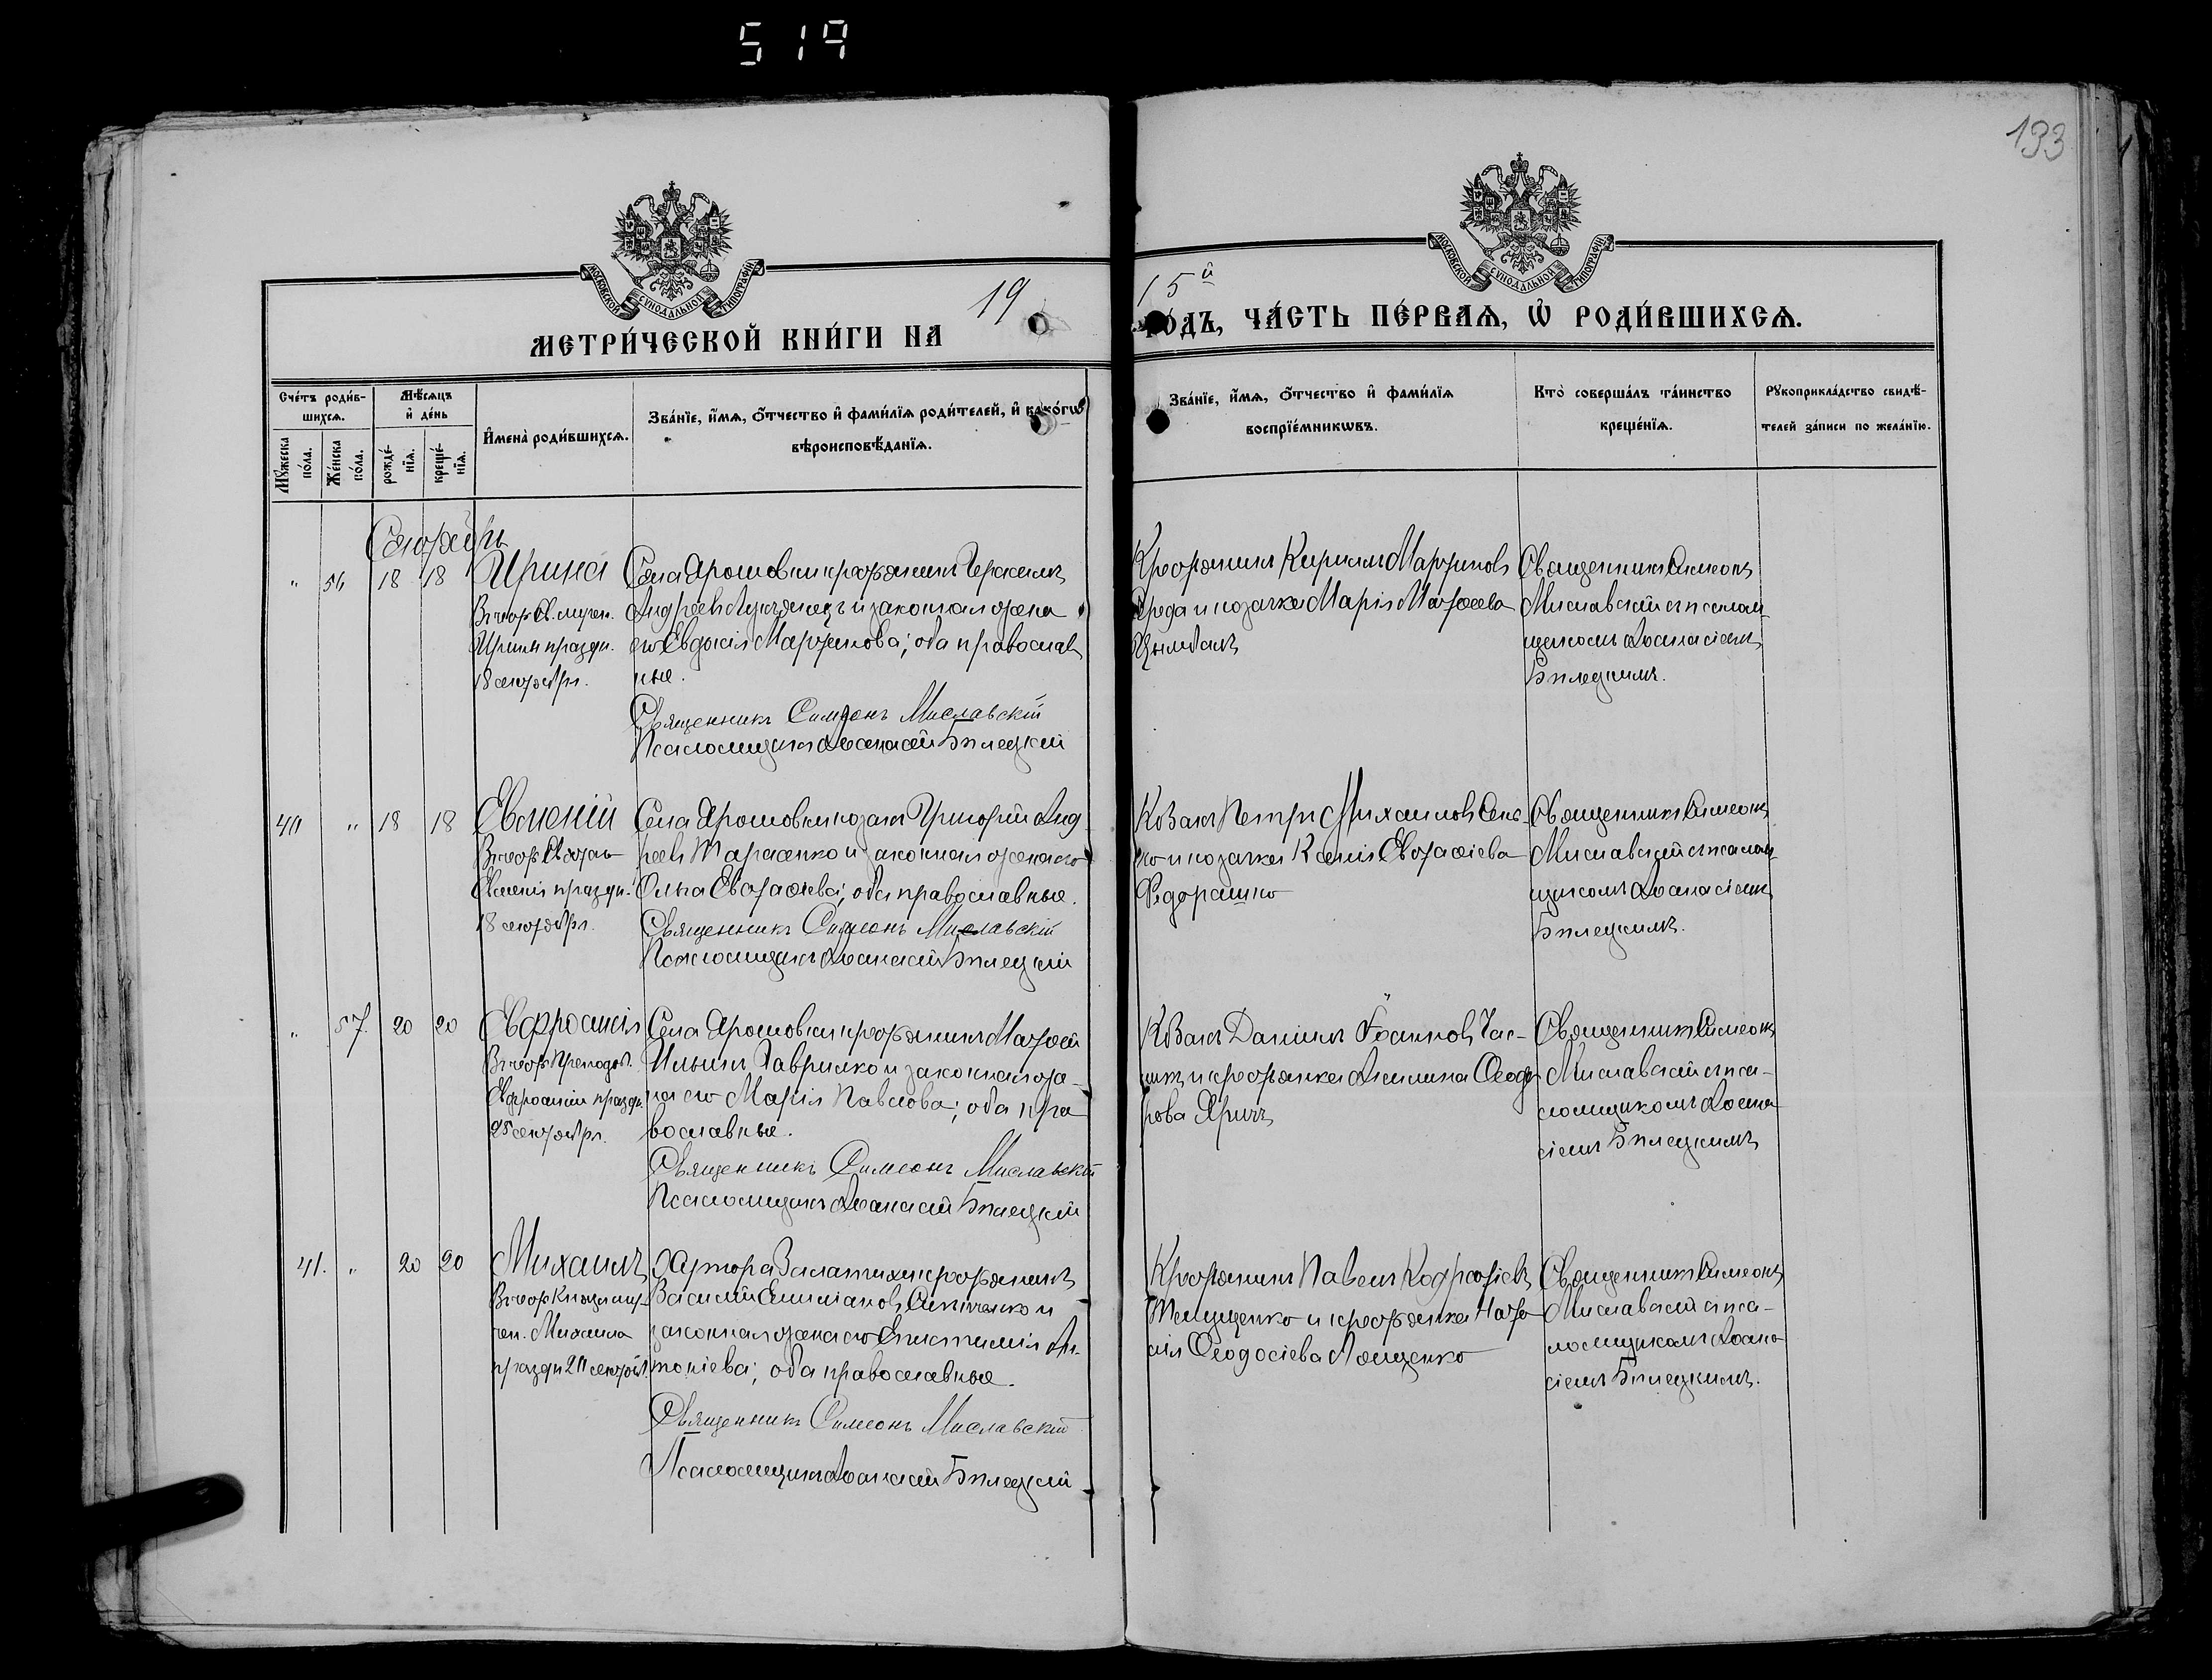 519
133
МОСКОВСКОЙ СѴНОДАЛЬНОЙ ТИПОГРАФІИ
МОСКОВСКОЙ СѴНОДАЛЬНОЙ ТИПОГРАФІИ
МЕТРИ́ЧЕСКОЙ КНИ́ГИ НА 19
15й ГО́ДЪ, ЧА́СТЬ ПЕ́РВАѦ, Ѡ҆ РОДИ́ВШИХСѦ.
Сче́тъ роди́в-
шихсѧ.
Мꙋ́жеска по́ла.
Же́нска по́ла.
Мѣ́сѧцъ
и҆ де́нь
рожде́-
нїѧ.
креще́-
нїѧ.
И҆мена̀ роди́вшихсѧ.
Зва́нїе, и҆́мѧ, ѻ҆́тчество и҆ фами́лїѧ роди́телей, и҆ како́гѡ
вѣроисповѣ́данїѧ.
Зва́нїе, и҆́мѧ, ѻ҆́тчество и҆ фами́лїѧ
воспрїе́мникѡвъ.
Кто̀ соверша́лъ та́инство
креще́нїѧ.
Рꙋкоприкла́дство свидѣ́-
телей за́писи по жела́нїю.
Сентябрь
" 56 18 18 Ирина
Въ чест Св. мучен.
Ирины праздн.
18 сентября.
Села Ярошовки крестьянин Герасимъ
Андреевъ и законная жена
его Евдокія Мартинова; оба православ
ные.
Священникъ Симеонъ Миславскій
Псаломщикъ Аѳанасій Билецкій
Крестьянинъ Кирилл Мартиновъ
и козачка Марія Матѳеева
Цымбалъ
Священникъ Симеонъ
Миславскій съ псалом-
щикомъ Аѳанасіемъ
Билецкимъ.
40 " 18 18 Евменій
Въ чест Святаго
Евменія праздн.
18 сентября.
Села Ярошовки козакъ Григорій Анд-
реевъ Тарасенко и законная жена его
Ольга Евстаѳіева; оба православные.
Священникъ Симеонъ Миславскій
Псаломщикъ Аѳанасій Билецкій
Козакъ Петръ Михаиловъ
и козачка Ксенія Евстаѳіева
Федорашко
Священникъ Симеонъ
Миславскій съ псалом-
щикомъ Аѳанасіемъ
Билецкимъ.
" 57. 20 20 Евфросинія
Въ чест Преподоб.
Евфросиніи праздн.
25 сентября.
Села Ярошовки крестьянинъ Матѳей
Ильинъ Гаврилко и законная же-
на его Марія Павлова; оба пра-
вославные.
Священникъ Симеонъ Миславскій
Псаломщикъ Аѳанасій Билецкій
Козакъ Даніилъ Іоанновъ
и крестьянка Акилина Ѳеодо-
рова Яричъ
Священникъ Симеонъ
Миславскій съ пса-
ломщикомъ Аѳана-
сіемъ Билецкимъ
41. " 20 20 Михаилъ
Въ чест Князя му-
чен. Михаила
праздн 20 сентябр.
Хутора крестьянинъ
Василій и
законная жена его Епистимія Ан-
тоніева; оба православные.
Священникъ Симеонъ Миславскій
Псаломщикъ Аѳанасій Билецкій
Крестьянинъ Павелъ Кодратіевъ
и крестьянка Ната-
лія Ѳеодосіева Лощенко
Священникъ Симеонъ
Миславскій съ пса-
ломщикомъ Аѳана-
сіемъ Билецкимъ.